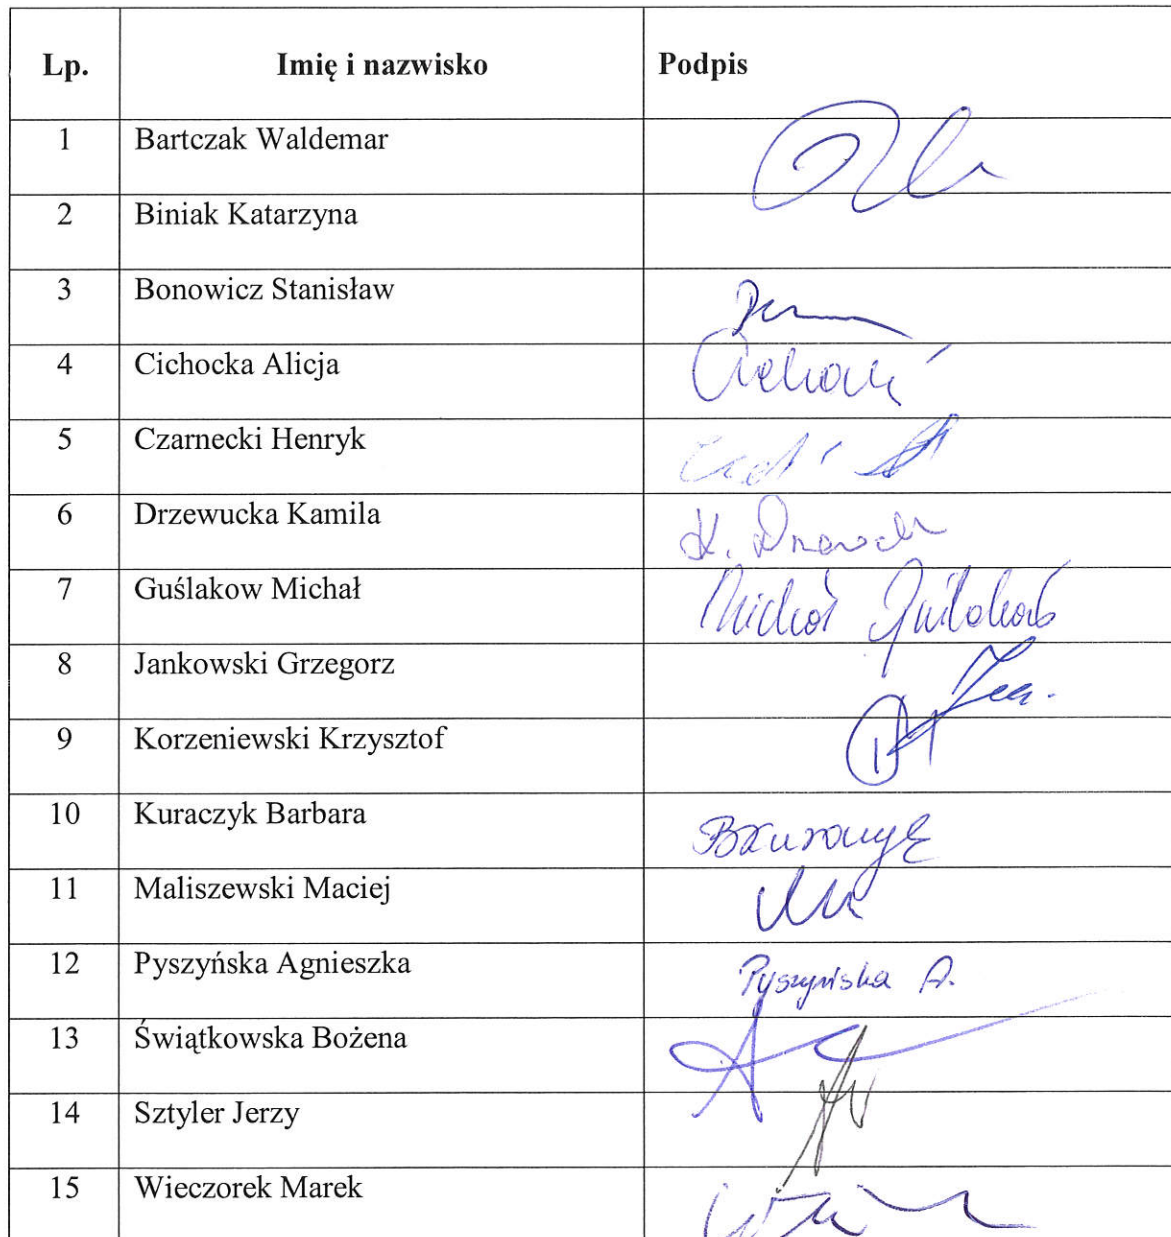 Lp. Imię i nazwisko Podpis
1 Bartczak Waldemar
2 Biniak Katarzyna
3 Bonowicz Stanisław
4 Cichocka Alicja
5 Czarnecki Henryk
6 Drzewucka Kamila K.
7 Guślakow Michał Michał
8 Jankowski Grzegorz
9 Korzeniewski Krzysztof
10 Kuraczyk Barbara
11 Maliszewski Maciej
12 Pyszyńska Agnieszka Pyszyńska A.
13 Świątkowska Bożena
14 Sztyler Jerzy
15 Wieczorek Marek